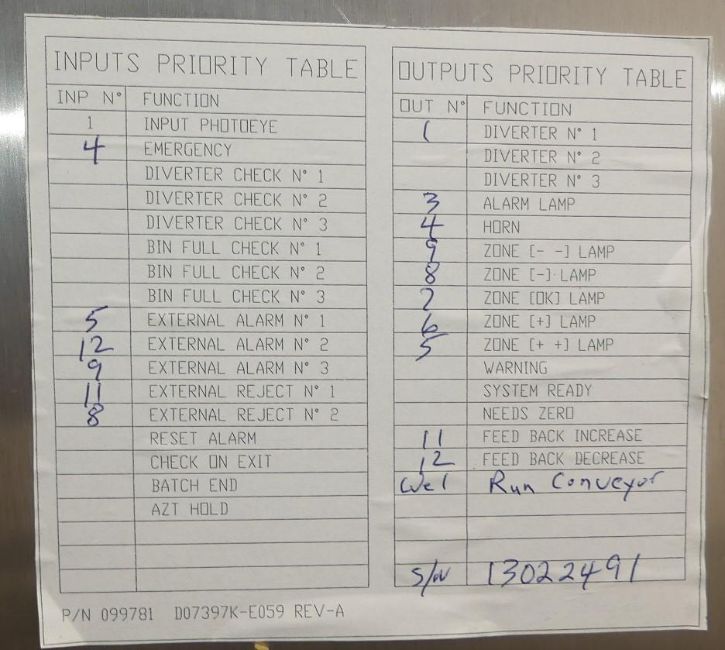 INPUTS PRIORITY TABLE
INP N° FUNCTION
1 INPUT PHOTOEYE
4 EMERGENCY
DIVERTER CHECK N° 1
DIVERTER CHECK N° 2
DIVERTER CHECK N° 3
BIN FULL CHECK N° 1
BIN FULL CHECK N° 2
BIN FULL CHECK N° 3
5 EXTERNAL ALARM N° 1
12 EXTERNAL ALARM N° 2
9 EXTERNAL ALARM N° 3
11 EXTERNAL REJECT N° 1
8 EXTERNAL REJECT N° 2
RESET ALARM
CHECK ON EXIT
BATCH END
AZT HOLD
P/N 099781 D07397K-E059 REV-A
OUTPUTS PRIORITY TABLE
OUT N° FUNCTION
1 DIVERTER N° 1
DIVERTER N° 2
DIVERTER N° 3
3 ALARM LAMP
4 HORN
9 ZONE [- -] LAMP
8 ZONE [-] LAMP
7 ZONE [OK] LAMP
6 ZONE [+] LAMP
5 ZONE [+ +] LAMP
WARNING
SYSTEM READY
NEEDS ZERO
11 FEED BACK INCREASE
12 FEED BACK DECREASE
Run Conveyor
S/N 13022491